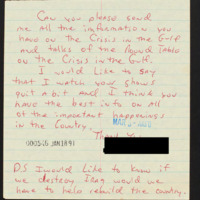 Can you please send
me All the information you
have on the Crisis in the Gulf
and talks of the Round Table
on the Crisis in the Gulf.
I would like to say
that I watch your show
quit a bit And I think you
have the best info on All
of the important happenings
in the Country.
Thank You
000505 JAN1891
P.S I would like to know if
we destroy Iraq would we
have to help rebuild the country.